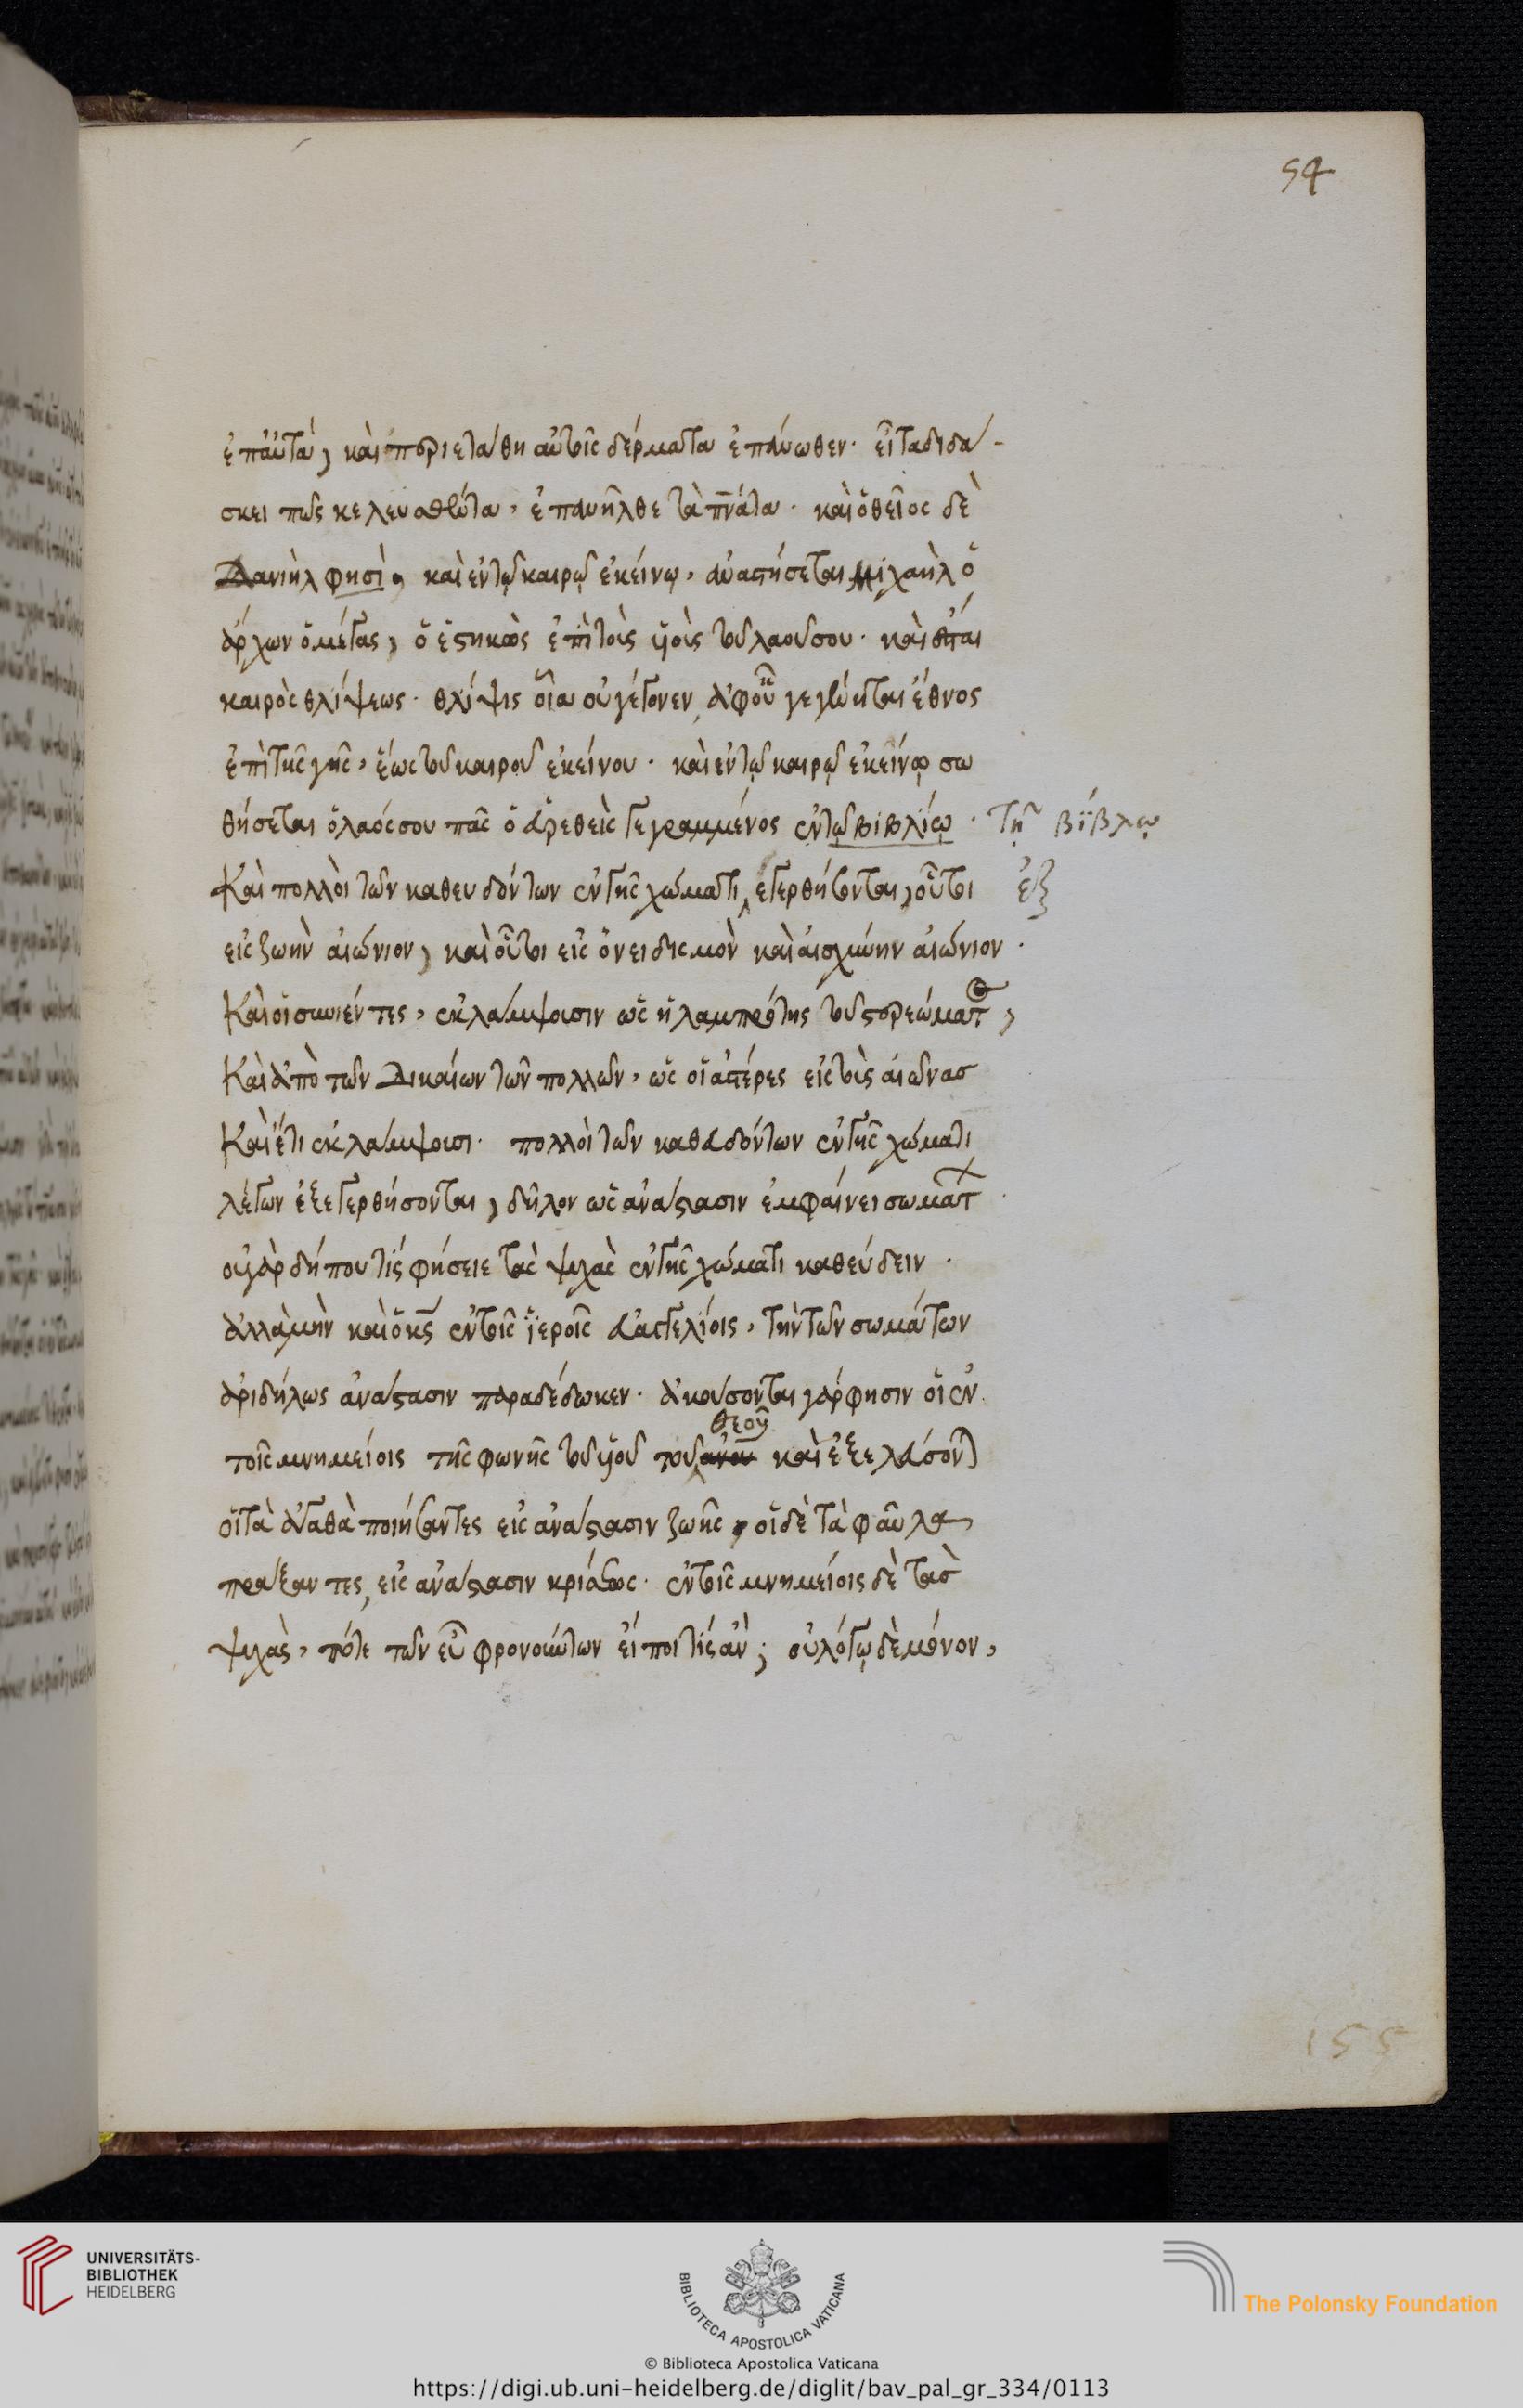 54
ἐπ' αὐτὰ, καὶ περιετάθη αὐτοῖς δέρματα ἐπάνωθεν. εἶτα διδά-
σκει πῶς κελευσθέντα, ἐπανῆλθε τὰ πνάτα. καὶ ὁ θεῖος δὲ
Δανιὴλ φησὶ, καὶ ἐν τῷ καιρῷ ἐκείνῳ, ἀναστήσεται Μιχαὴλ ὁ
ἄρχων ὁ μέγας, ὁ ἑστηκὼς ἐπὶ τοὺς υἱοὺς τοῦ λαοῦ σου. καὶ ἔσται
καιρὸς θλίψεως. θλίψις οἵα οὐ γέγονεν, ἀφ' οὗ γεγένηται ἔθνος
ἐπὶ τῆς γῆς, ἕως τοῦ καιροῦ ἐκείνου. καὶ ἐν τῷ καιρῷ ἐκείνῳ σω
θήσεται ὁ λαός σου πᾶς ὁ εὑρεθεὶς γεγραμμένος ἐν τῷ βιβλίῳ. τῇ βίβλῳ
Καὶ πολλοὶ τῶν καθευδόντων ἐν γῆς χώματι, ἐγερθήσονται, οὗτοι ἐξ
εἰς ζωὴν αἰώνιον, καὶ οὗτοι εἰς ὀνειδισμὸν καὶ αἰσχύνην αἰώνιον.
Καὶ οἱ συνιέντες, ἐκλάμψουσιν ὡς ἡ λαμπρότης τοῦ στερεώματο,
Καὶ ἀπὸ τῶν Δικαίων τῶν πολλῶν, ὡς οἱ ἀστέρες εἰς τοὺς αἰῶνας
Καὶ ἔτι ἐκλάμψουσι. πολλοὶ τῶν καθευδόντων ἐν γῆς χώματι
λέγων ἐξεγερθήσονται, δῆλον ὡς ἀνάστασιν ἐμφαίνει σωμάτ.
οὐ γὰρ δήπου τίς φήσειε τὰς ψυχὰς ἐν γῆς χώματι καθεύδειν.
ἀλλὰ μὴν καὶ ὁ κς ἐν τοῖς ἱεροῖς εὐαγγελίοις, τὴν τῶν σωμάτων
ἀριδήλως ἀνάστασιν παραδέδωκεν. ἀκούσονται γάρ φησιν οἱ ἐν
θεοῦ
τοῖς μνημείοις τῆς φωνῆς τοῦ υἱοῦ τοῦ ἀνου καὶ ἐξελεύσοντ
οἱ τὰ ἀγαθὰ ποιήσαντες εἰς ἀνάστασιν ζωῆς, οἱ δὲ τὰ φαῦλα
πράξαντες, εἰς ἀνάστασιν κρίσεως. ἐν τοῖς μνημείοις δὲ τὰς
ψυχὰς, πότε τῶν εὖ φρονούντων εἴποι τίς ἂν; οὐ λόγῳ δὲ μόνον,
155
UNIVERSITÄTS-
BIBLIOTHEK
HEIDELBERG
BIBLIOTECA APOSTOLICA VATICANA
The Polonsky Foundation
© Biblioteca Apostolica Vaticana
https://digi.ub.uni-heidelberg.de/diglit/bav_pal_gr_334/0113